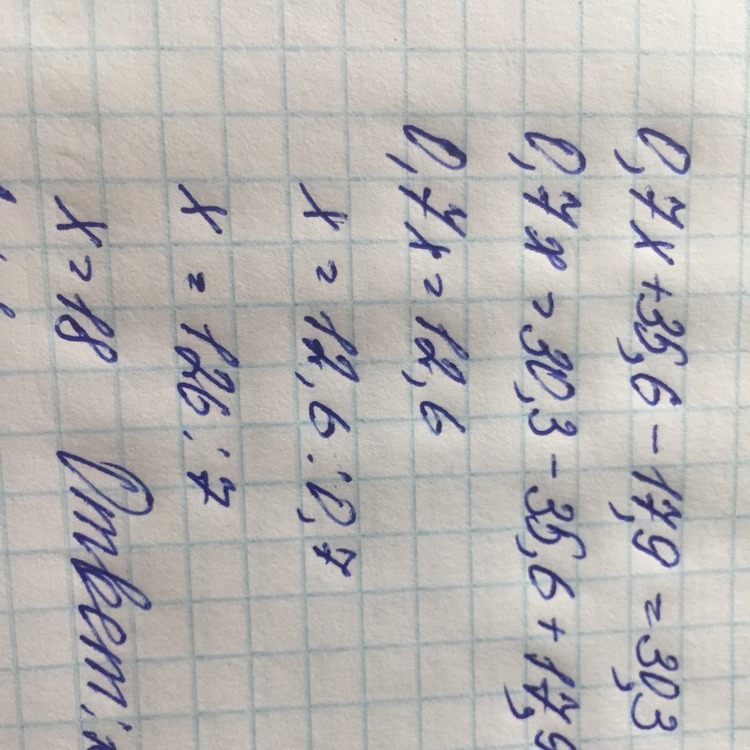 0,7x + 35,6 - 17,9 = 30,3
0,7x = 30,3 - 35,6 + 17,9
0,7x = 12,6
x = 12,6 : 0,7
x = 126 : 7
x = 18 Ответ: x